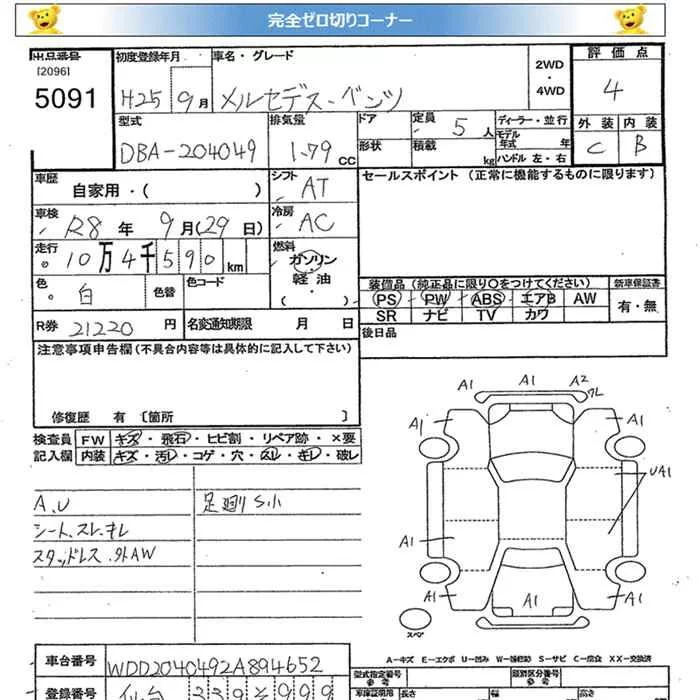 完全ゼロ切りコーナー
出品番号 初度登録年月 車名・グレード 2WD ・ 4WD 評価点
[2096]
5091 H25 9月 メルセデス・ベンツ 4
型式 排気量 ドア 定員 5人 ディーラー・並行 外装 内装
DBA-204049 1.79 CC 形状 積載 kg モデル年式 年 C B
ハンドル 左・右
車歴 自家用・( ) シフト AT セールスポイント (正常に機能するものに限ります)
車検 R8年 9月(29日) 冷房 AC
走行 10万4千590km 燃料 ガソリン・軽油・( )
色 白 色替 色コード 装備品(純正品に限り○をつけてください) 新車保証書
PS PW ABS エアB AW 有・無
R券 21220円 名変通知期限 月 日 SR ナビ TV カワ
後日品
注意事項申告欄(不具合内容等は具体的に記入して下さい)
修復歴 有 [箇所 ]
検査員 FW キズ・飛石・ヒビ割・リペア跡・×要
記入欄 内装 キズ・汚レ・コゲ・穴・スレ・キレ・破レ
A.U 足廻りS小
シート.スレ.キレ
スタッドレス.外AW
A1 A1 A2
A1 A1
UA1
A1
A1 A1 A1
スペア
A-キズ E-エクボ U-凹み W-補修跡 S-サビ C-腐食 XX-交換済
車台番号 WDD2040492A894652 型式指定番号 参考 類別区分番号 参考
登録番号 仙台 車庫証明用 参考 長さ 幅 高さ